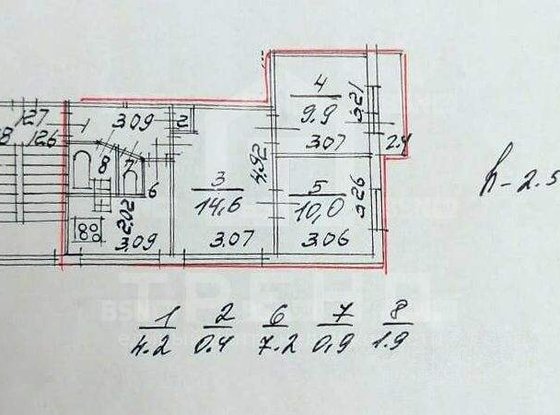 4
9.9
3.21
3.07
2.4
127
126
8
1
3.09
2
8
7
6
3
14,6
4,92
3.07
5
10,0
3,26
3.06
2.02
3.09
h-2.5
1 2 6 7 8
4.2 0.4 7.2 0,9 1.9